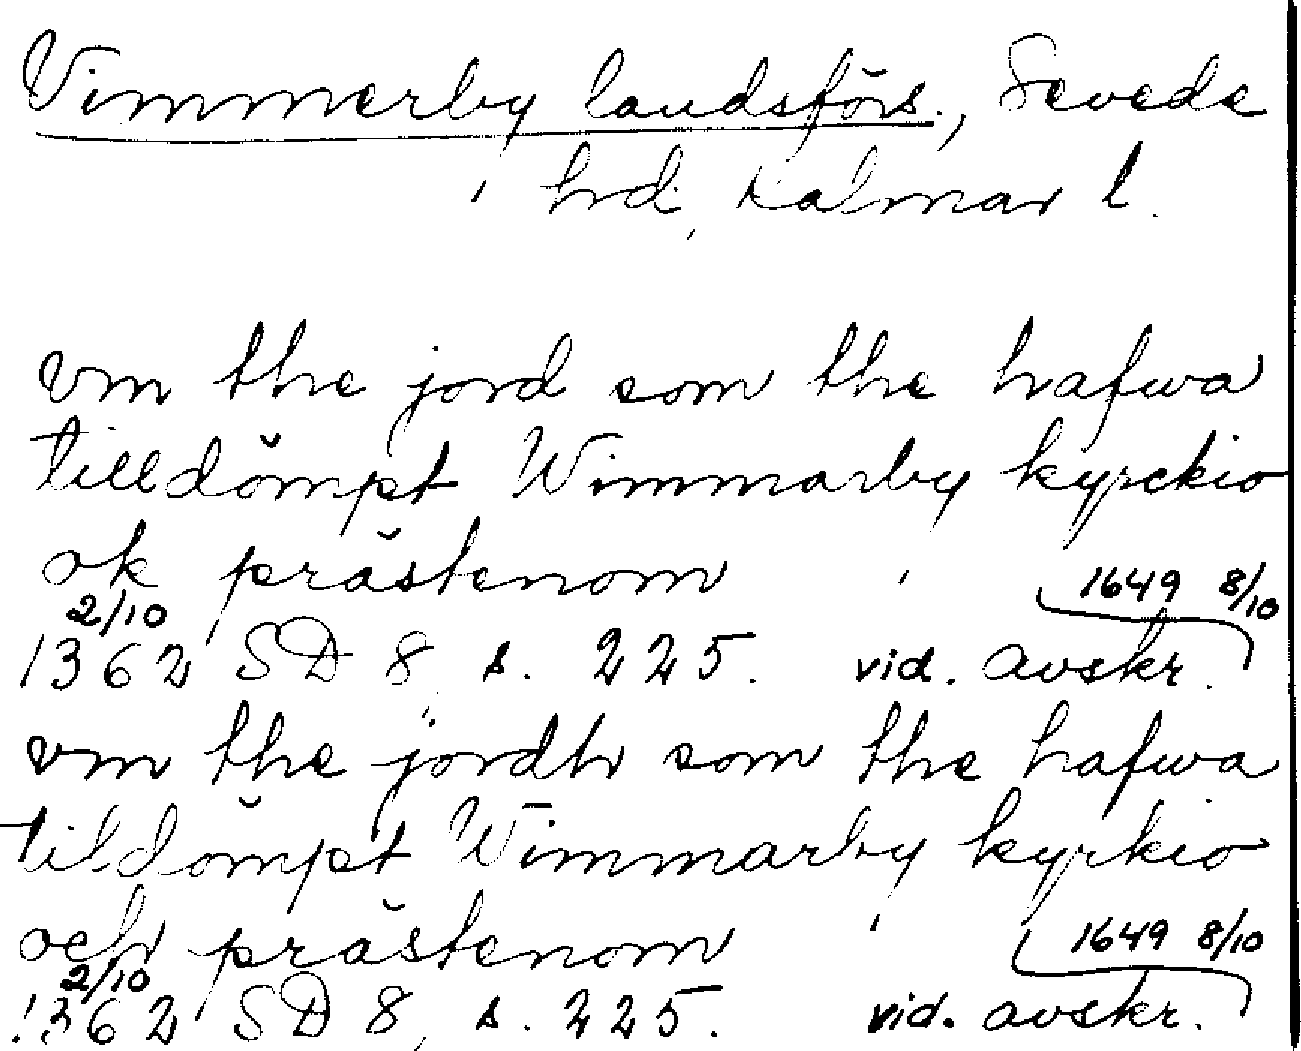 Vimmerby landsförs., Sevede
hd, Kalmar l.
vm the jord som the hafwa
tilldömpt Wimmarby kyrckio
ok prästenom
1649 8/10
2/10
1362 SD 8, s. 225. vid. avskr.
vm the jordh som the hafwa
tildömpt Wimmarby kyrkio
och prästenom
1649 8/10
2/10
1362 SD 8, s. 225. vid. avskr.